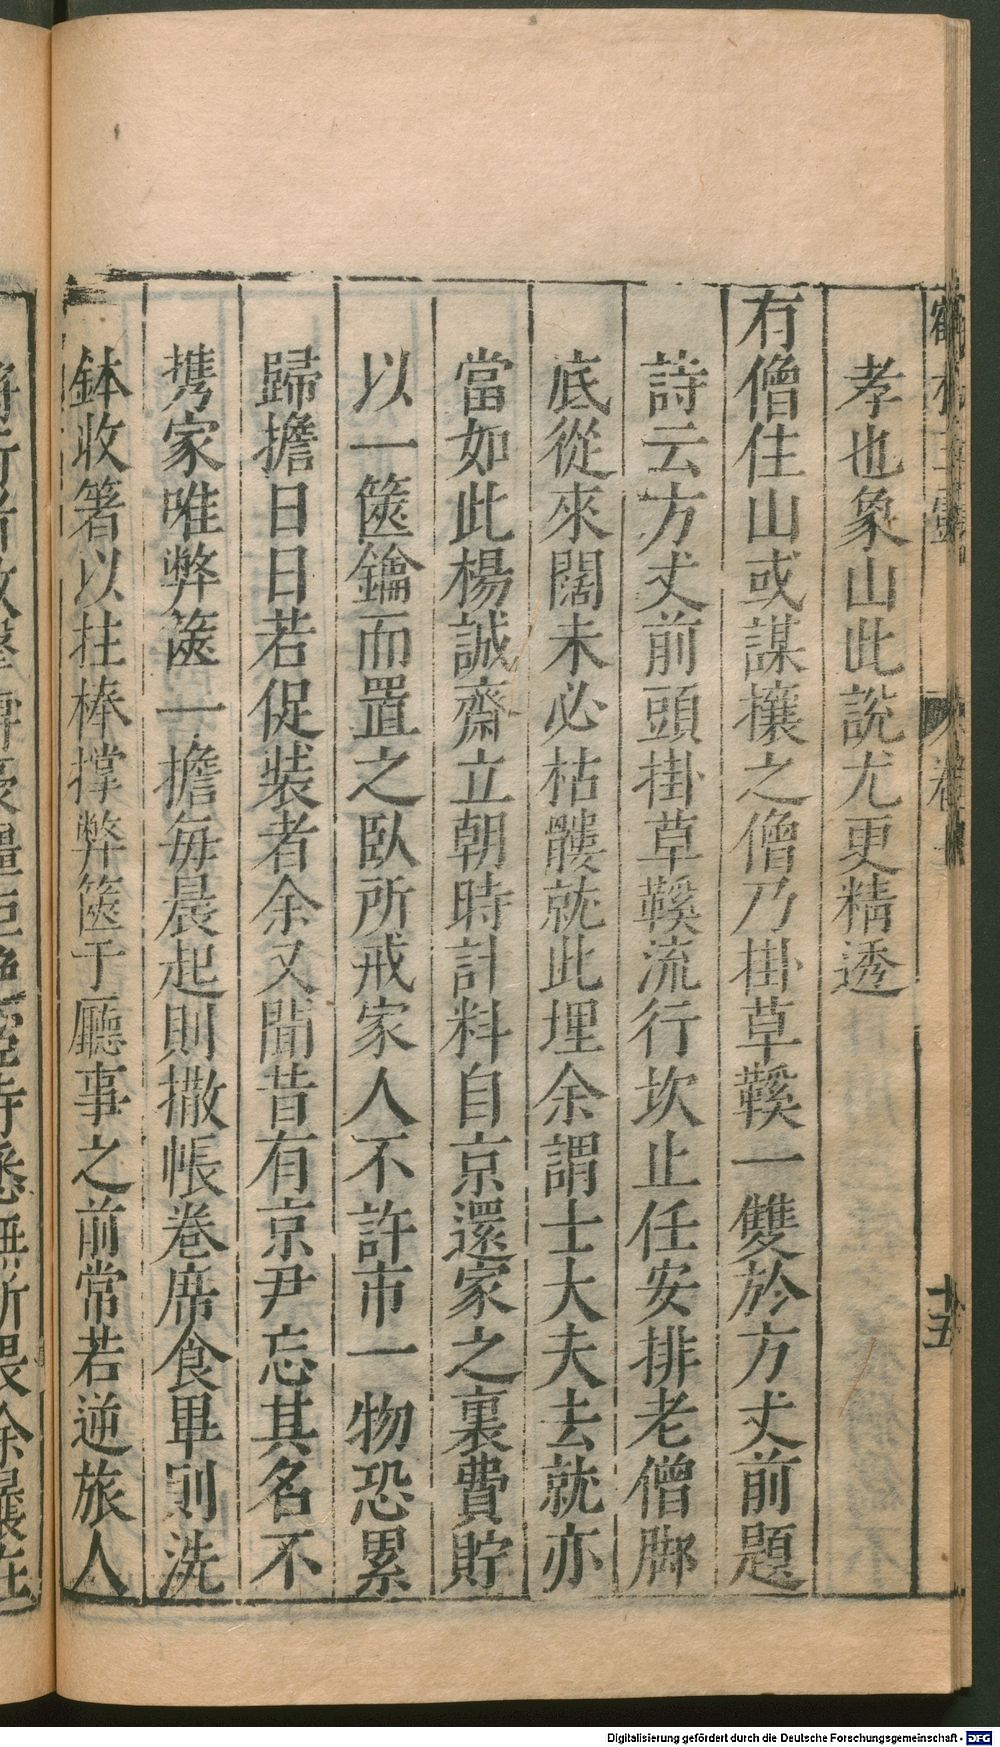 孝也象山此說尤更精透
有僧住山或謀攘之僧乃掛草鞵一雙於方丈前題
詩云方丈前頭掛草鞵流行坎止任安排老僧脚
底從來闊未必枯髏就此埋余謂士大夫去就亦
當如此楊誠齋立朝時計料自京還家之裏費貯
以一篋鑰而置之臥所戒家人不許市一物恐累
歸擔日日若促裝者余又聞昔有京尹忘其名不
携家唯弊篋一擔每晨起則撒帳卷席食畢則洗
鉢收箸以拄棒撑弊篋于廳事之前常若逆旅人
十五
Digitalisierung gefördert durch die Deutsche Forschungsgemeinschaft - DFG